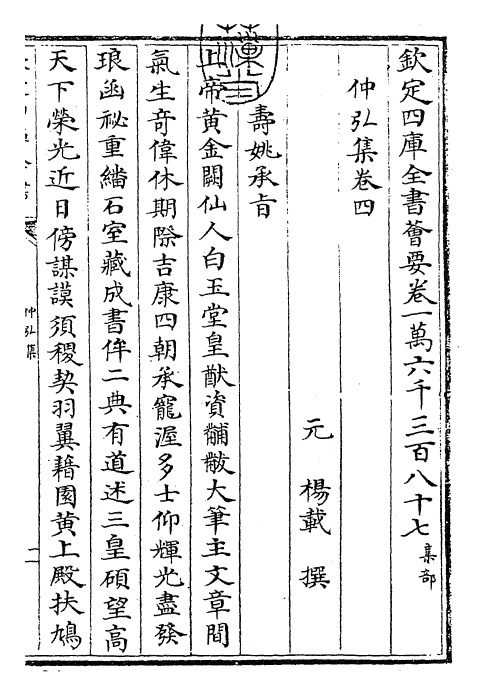 欽定四庫全書薈要卷一萬六千三百八十七集部
仲弘集卷四
元 楊載 撰
壽姚承旨
上帝黃金闕仙人白玉堂皇猷資黼黻大筆主文章間
氣生奇偉休期際吉康四朝承寵渥多士仰輝光盡發
琅函祕重繙石室藏成書侔二典有道述三皇碩望高
天下榮光近日傍謀謨須稷契羽翼藉園黃上殿扶鳩
仲弘集